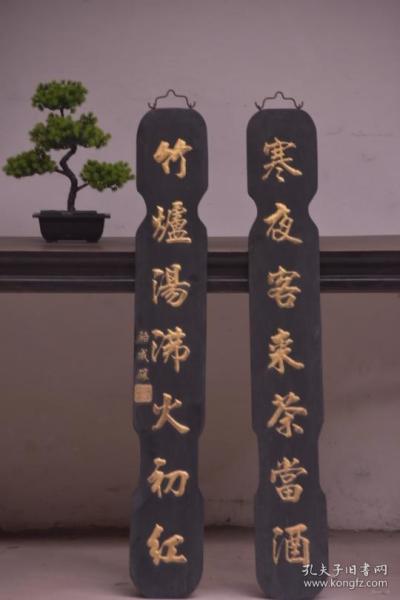 寒夜客来茶當酒
竹爐湯沸火初紅
孔夫子旧书网
www.kongfz.com